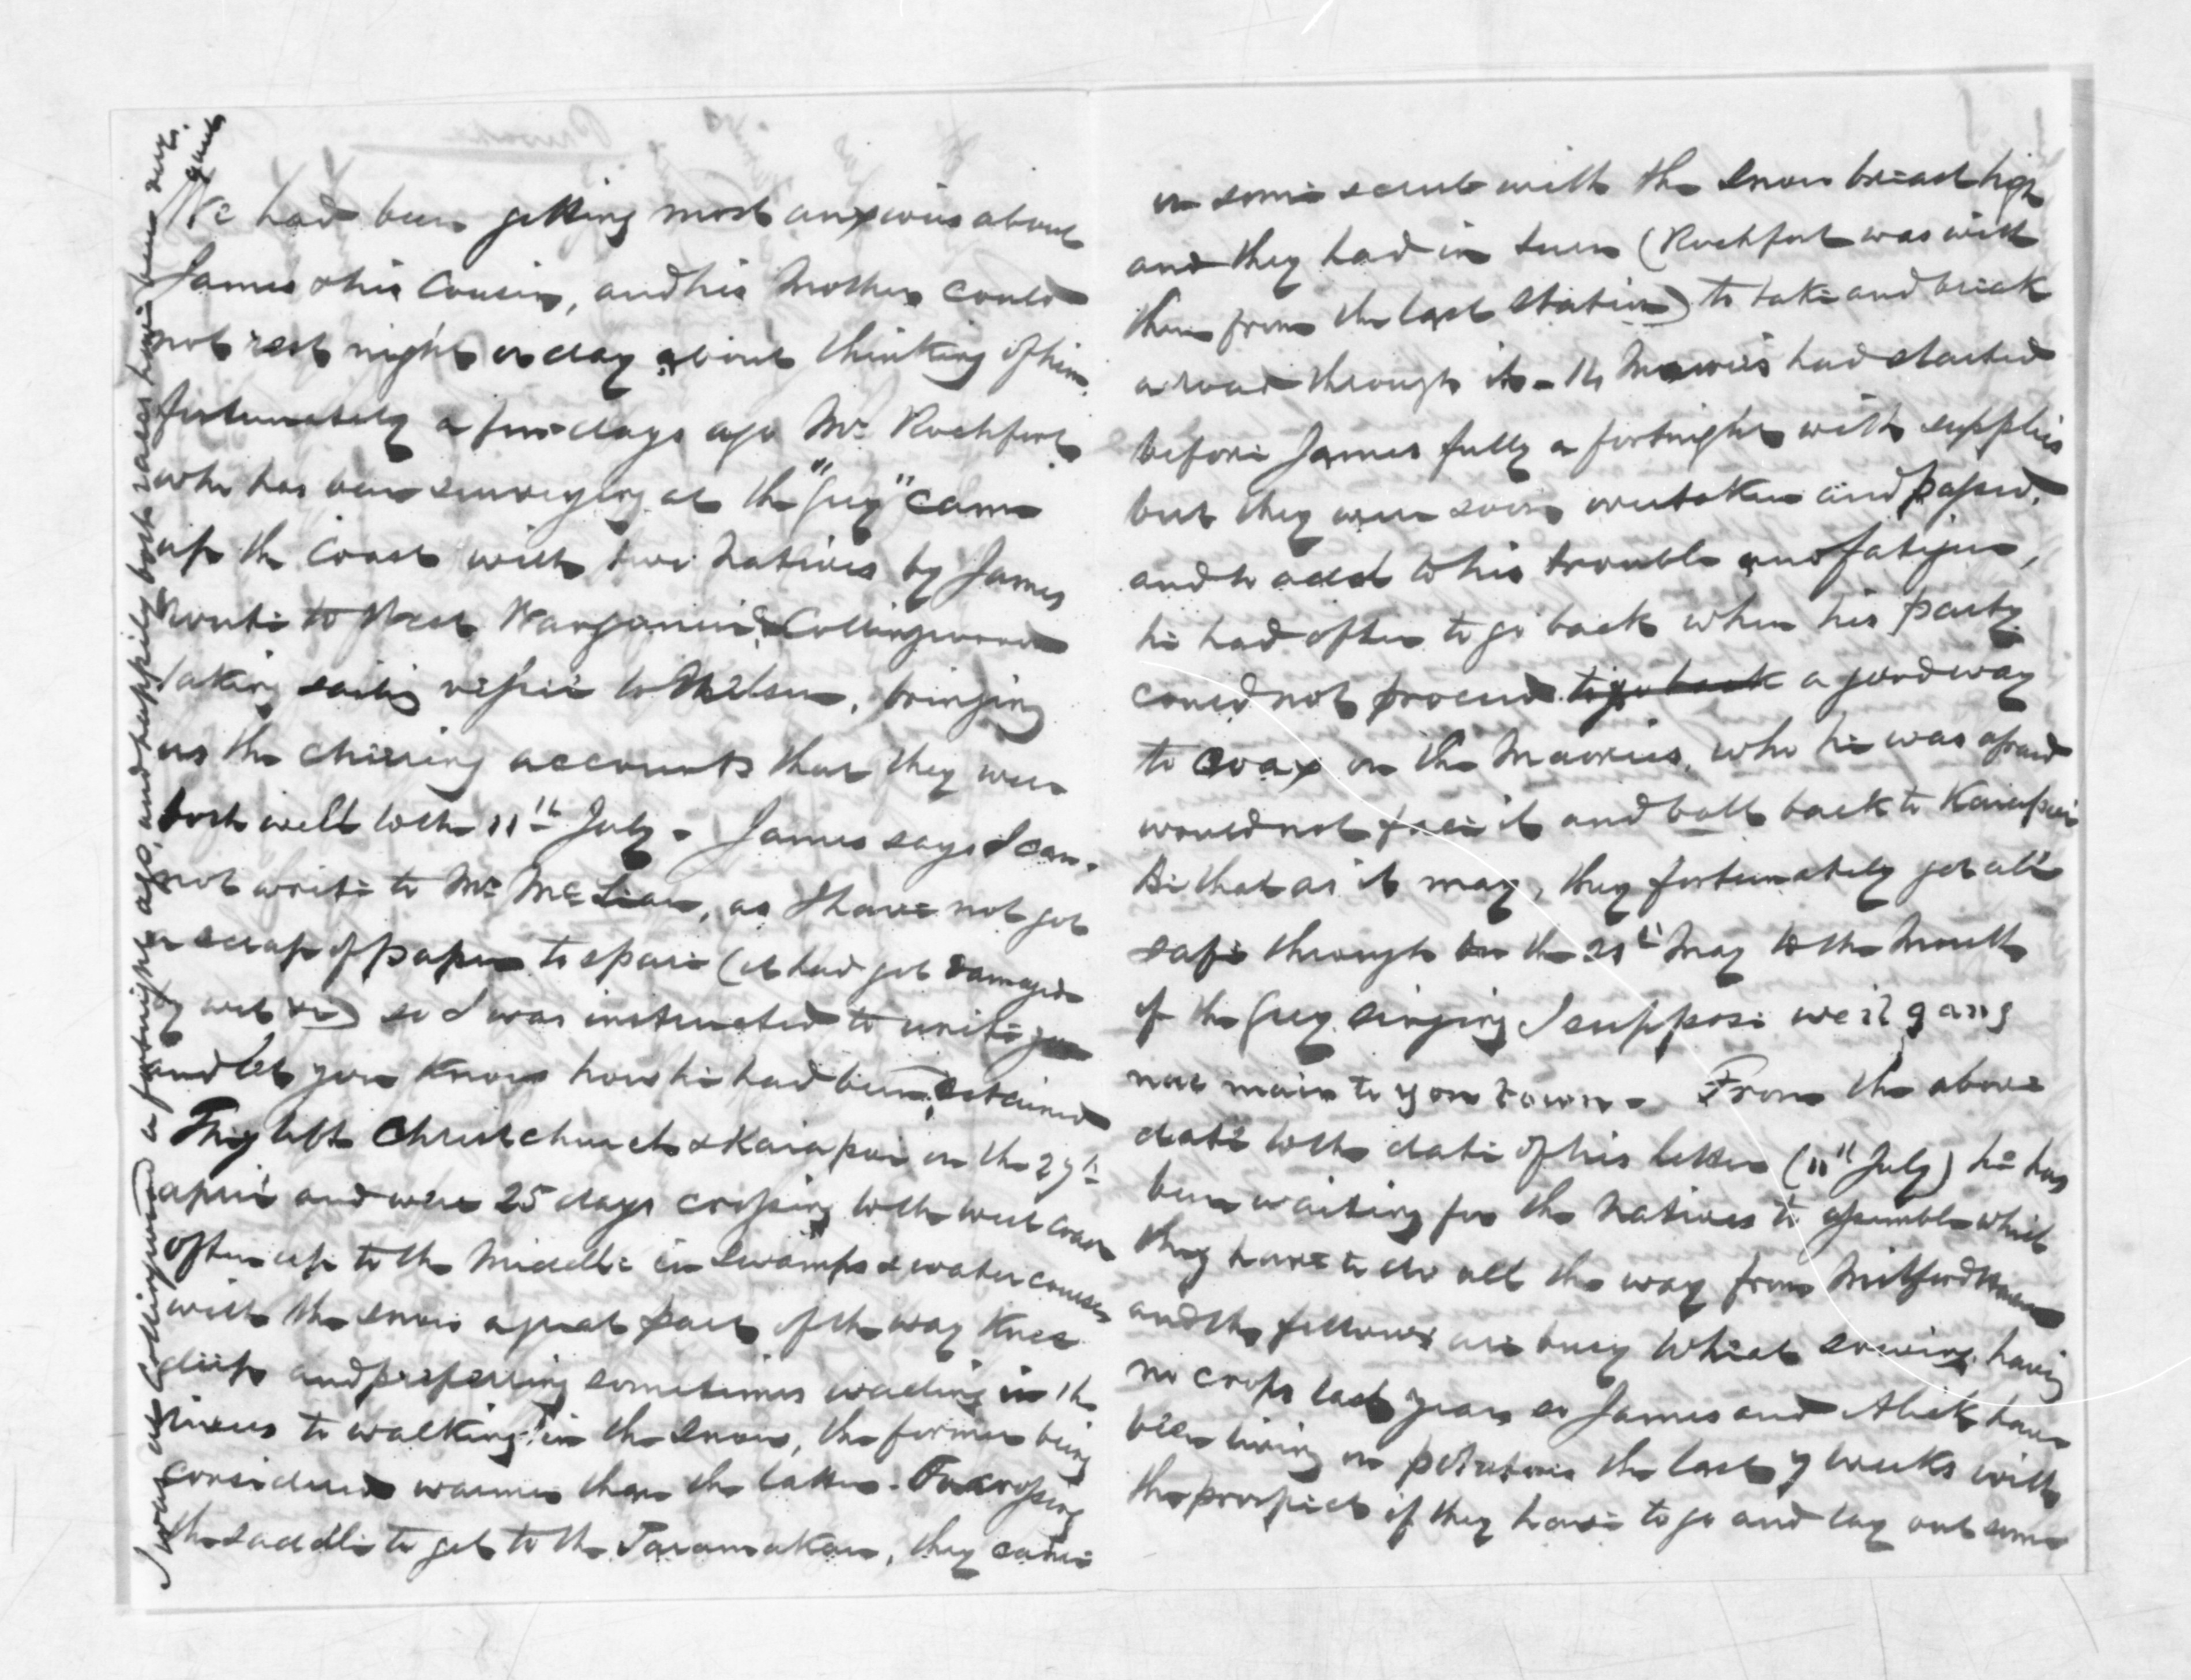 We had been getting most anxious about
James & his Cousin, and his Mother could
not rest night or day about thinking of him.
fortunately a few days ago Mr. Rochfort
who has been surveying at the "Grey" came
up the Coast with two Natives by James
route to West Wanganui, & Collingwood
taking sailing vessel to Nelson, bringing
us the cheering accounts that they were
both well to the 11th July - James says I can-
not write to Mr McLean, as I have not got
a scrap of paper to spare (it had got damaged
by wet &c) so I was instructed to write you
and let you know how he had been detained
They left Christchurch & Kaiapoi on the 27th
april and were 25 days crossing to the west coast
often up to the Middle in swamps & water courses
with the snow a great part of the way knee
deep and preferring sometimes wading in the
rivers to walking in the snow, the former being
considered warmer than the latter - In crossing
the saddle to get to the Taramakau, they came
I was at Collingwood a fortnight ago, and happily both races have been very
quiet
in some scrub with the snow breast high
and they had in turn (Rochfort was with
them from the last station) to take and break
a road through it - 14 Maories had started
before James fully a fortnight with supplies
but they were soon overtaken and passed,
and to add to his trouble and fatigue,
he had often to go back when his party
could not proceed to go back a good way
to coax on the Maories, who he was afraid
would not face it and bolt back to Kaiapoi
Be that as it may, they fortunately got all
safe through on the 21st May to the Mouth
of the Grey singing I suppose we'll gang
nae mair to yon town - From the above
date to the date of his letter (11th July) he has
been waiting for the Natives to assemble which
they have to do all the way from Milford Haven
and the fellows are busy Wheat sowing, having
no crops last year so James and Alick have
been living on potatoes the last 7 weeks with
the prospect if they have to go and lay out some